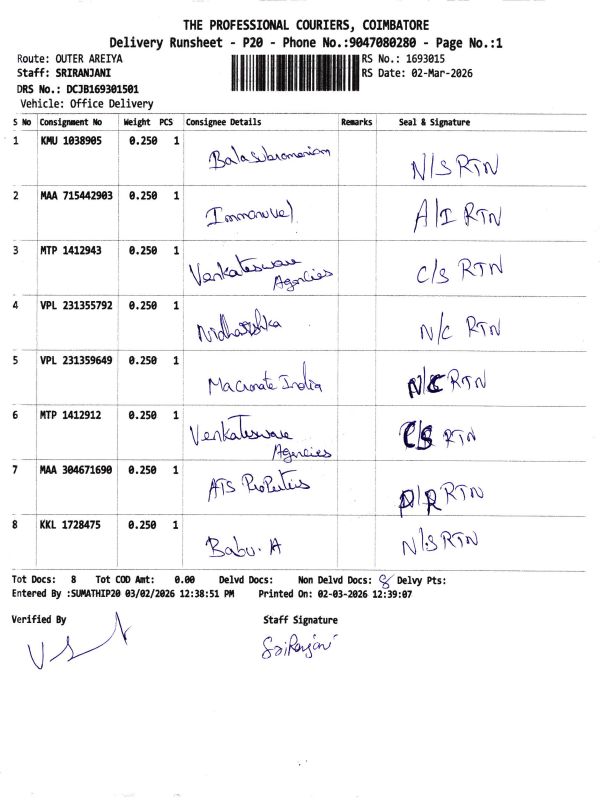 THE PROFESSIONAL COURIERS, COIMBATORE
Delivery Runsheet - P20 - Phone No.:9047080280 - Page No.:1
Route: OUTER AREIYA
RS No.: 1693015
Staff: SRIRANJANI
RS Date: 02-Mar-2026
DRS No.: DCJB169301501
Vehicle: Office Delivery
S No Consignment No Weight PCS Consignee Details Remarks Seal & Signature
1 KMU 1038905 0.250 1 Balasubramaniam N/S RTN
2 MAA 715442903 0.250 1 Immanuel A/I RTN
3 MTP 1412943 0.250 1 Venkateswara Agencies C/S RTN
4 VPL 231355792 0.250 1 N/C RTN
5 VPL 231359649 0.250 1 India N/C RTN
6 MTP 1412912 0.250 1 Venkateswara Agencies C/S RTN
7 MAA 304671690 0.250 1 ATS Properties P/R RTN
8 KKL 1728475 0.250 1 Babu. A N/S RTN
Tot Docs: 8 Tot COD Amt: 0.00 Delvd Docs: Non Delvd Docs: 8 Delvy Pts:
Entered By :SUMATHIP20 03/02/2026 12:38:51 PM Printed On: 02-03-2026 12:39:07
Verified By Staff Signature
SriRanjani